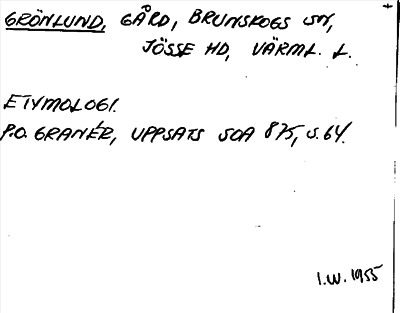 GRÖNLUND, GÅRD, BRUNSKOGS SN,
JÖSSE HD, VÄRML. L.
ETYMOLOGI.
P.O. GRANÉR, UPPSATS SOA 875, S. 64.
I.W. 1955